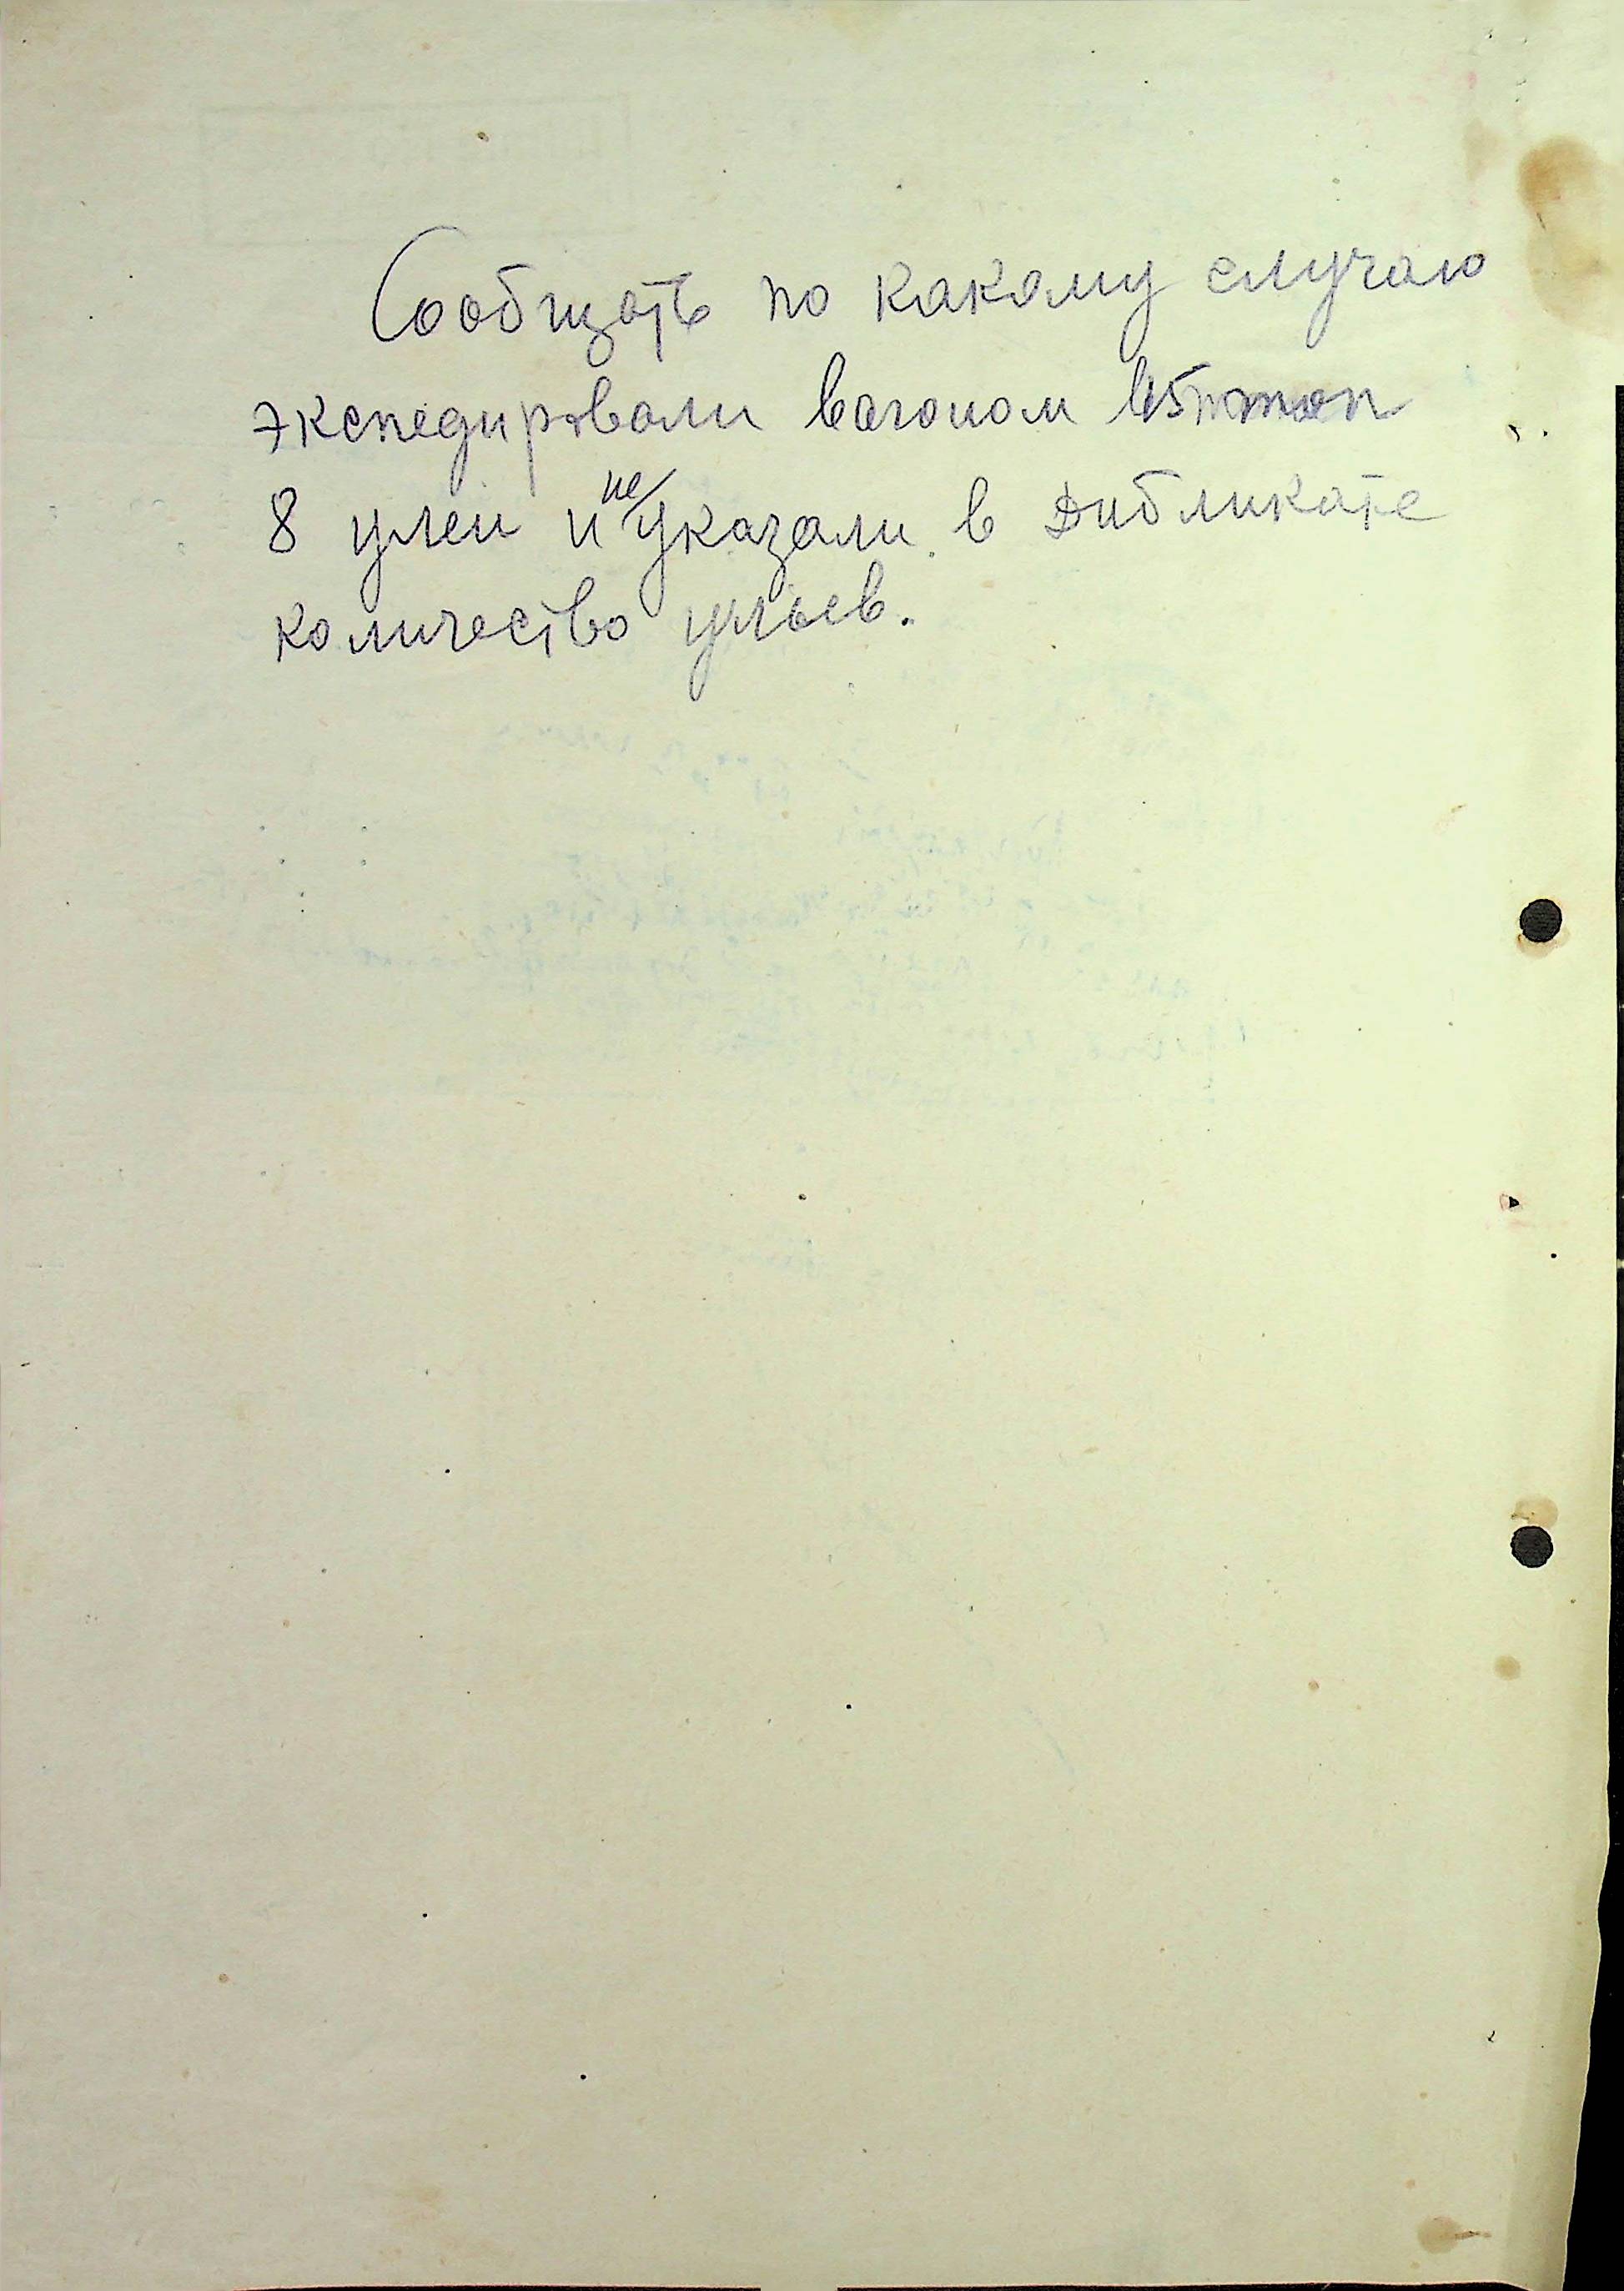 Сообщать по какому случаю
экспедировали вагоном
8 улеи и не указали в Дибликате
количество ульев.